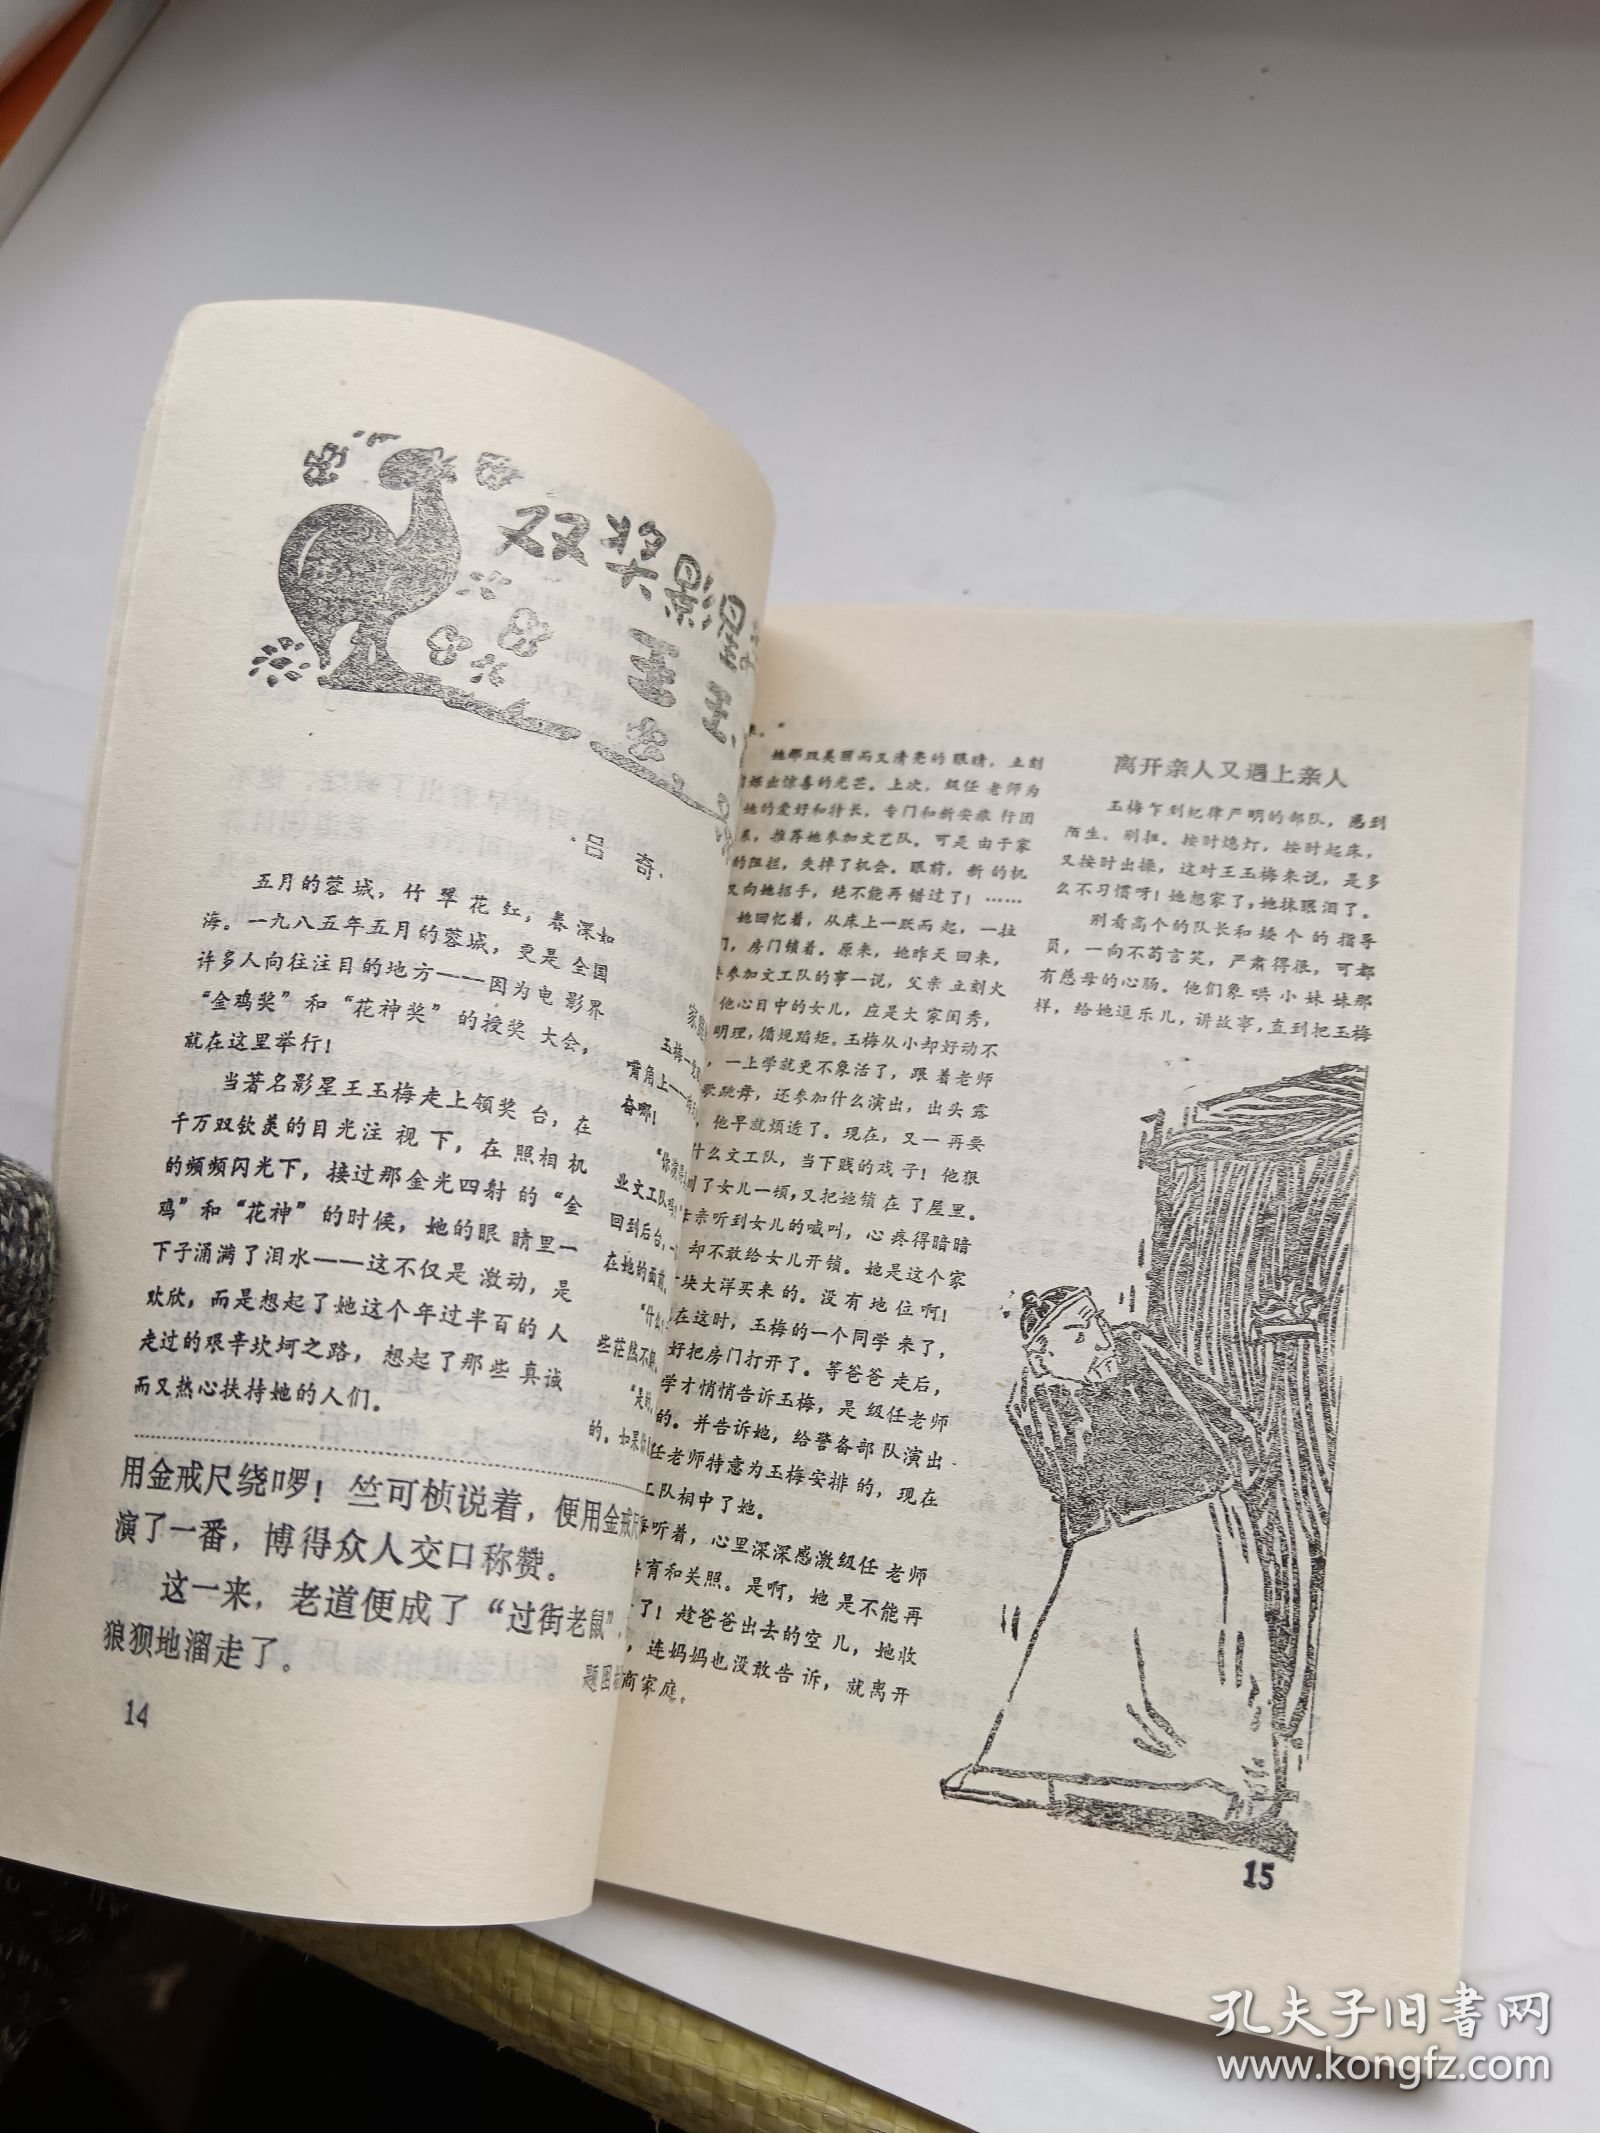 双奖影星
王玉
·吕 奇·
五月的蓉城，竹翠花红，春深如
海。一九八五年五月的蓉城，更是全国
许多人向往注目的地方——因为电影界
“金鸡奖”和“花神奖”的授奖大会，
就在这里举行！
当著名影星王玉梅走上领奖台，在
千万双钦羡的目光注视下，在照相机
的频频闪光下，接过那金光四射的“金
鸡”和“花神”的时候，她的眼睛里一
下子涌满了泪水——这不仅是激动，是
欢欣，而是想起了她这个年过半百的人
走过的艰辛坎坷之路，想起了那些真诚
而又热心扶持她的人们。
玉梅一
嘴角上—
奋哪！
“你演得
业文工队吗！”
回到后台，一
在她的面前，
“什么
些茫然不
“是的，
的。如果你
用金戒尺绕啰！竺可桢说着，便用金戒尺
演了一番，博得众人交口称赞。
这一来，老道便成了“过街老鼠”，
狼狈地溜走了。
题图
14
她那双美丽而又清亮的眼睛，立刻
烁出惊喜的光芒。上次，级任老师为
她的爱好和特长，专门和新安旅行团
系，推荐她参加文艺队。可是由于家
的阻拦，失掉了机会。眼前，新的机
又向她招手，绝不能再错过了！……
她回忆着，从床上一跃而起，一拉
门，房门锁着。原来，她昨天回来，
参加文工队的事一说，父亲立刻火
他心目中的女儿，应是大家闺秀，
明理，循规蹈矩。玉梅从小却好动不
，一上学就更不象活了，跟着老师
歌跳舞，还参加什么演出，出头露
他早就烦透了。现在，又一再要
什么文工队，当下贱的戏子！他狠
了女儿一顿，又把她锁在了屋里。
亲听到女儿的喊叫，心疼得暗暗
却不敢给女儿开锁。她是这个家
块大洋买来的。没有地位啊！
在这时，玉梅的一个同学来了，
好把房门打开了。等爸爸走后，
学才悄悄告诉玉梅，是级任老师
的。并告诉她，给警备部队演出
任老师特意为玉梅安排的，现在
工队相中了她。
听着，心里深深感激级任老师
育和关照。是啊，她是不能再
了！趁爸爸出去的空儿，她收
，连妈妈也没敢告诉，就离开
商家庭。
离开亲人又遇上亲人
玉梅乍到纪律严明的部队，感到
陌生、别扭。按时熄灯，按时起床，
又按时出操，这对王玉梅来说，是多
么不习惯呀！她想家了，她抹眼泪了。
别看高个的队长和矮个的指导
员，一向不苟言笑，严肃得很，可都
有慈母的心肠。他们象哄小妹妹那
样，给她逗乐儿，讲故事，直到把玉梅
15
孔夫子旧书网
www.kongfz.com